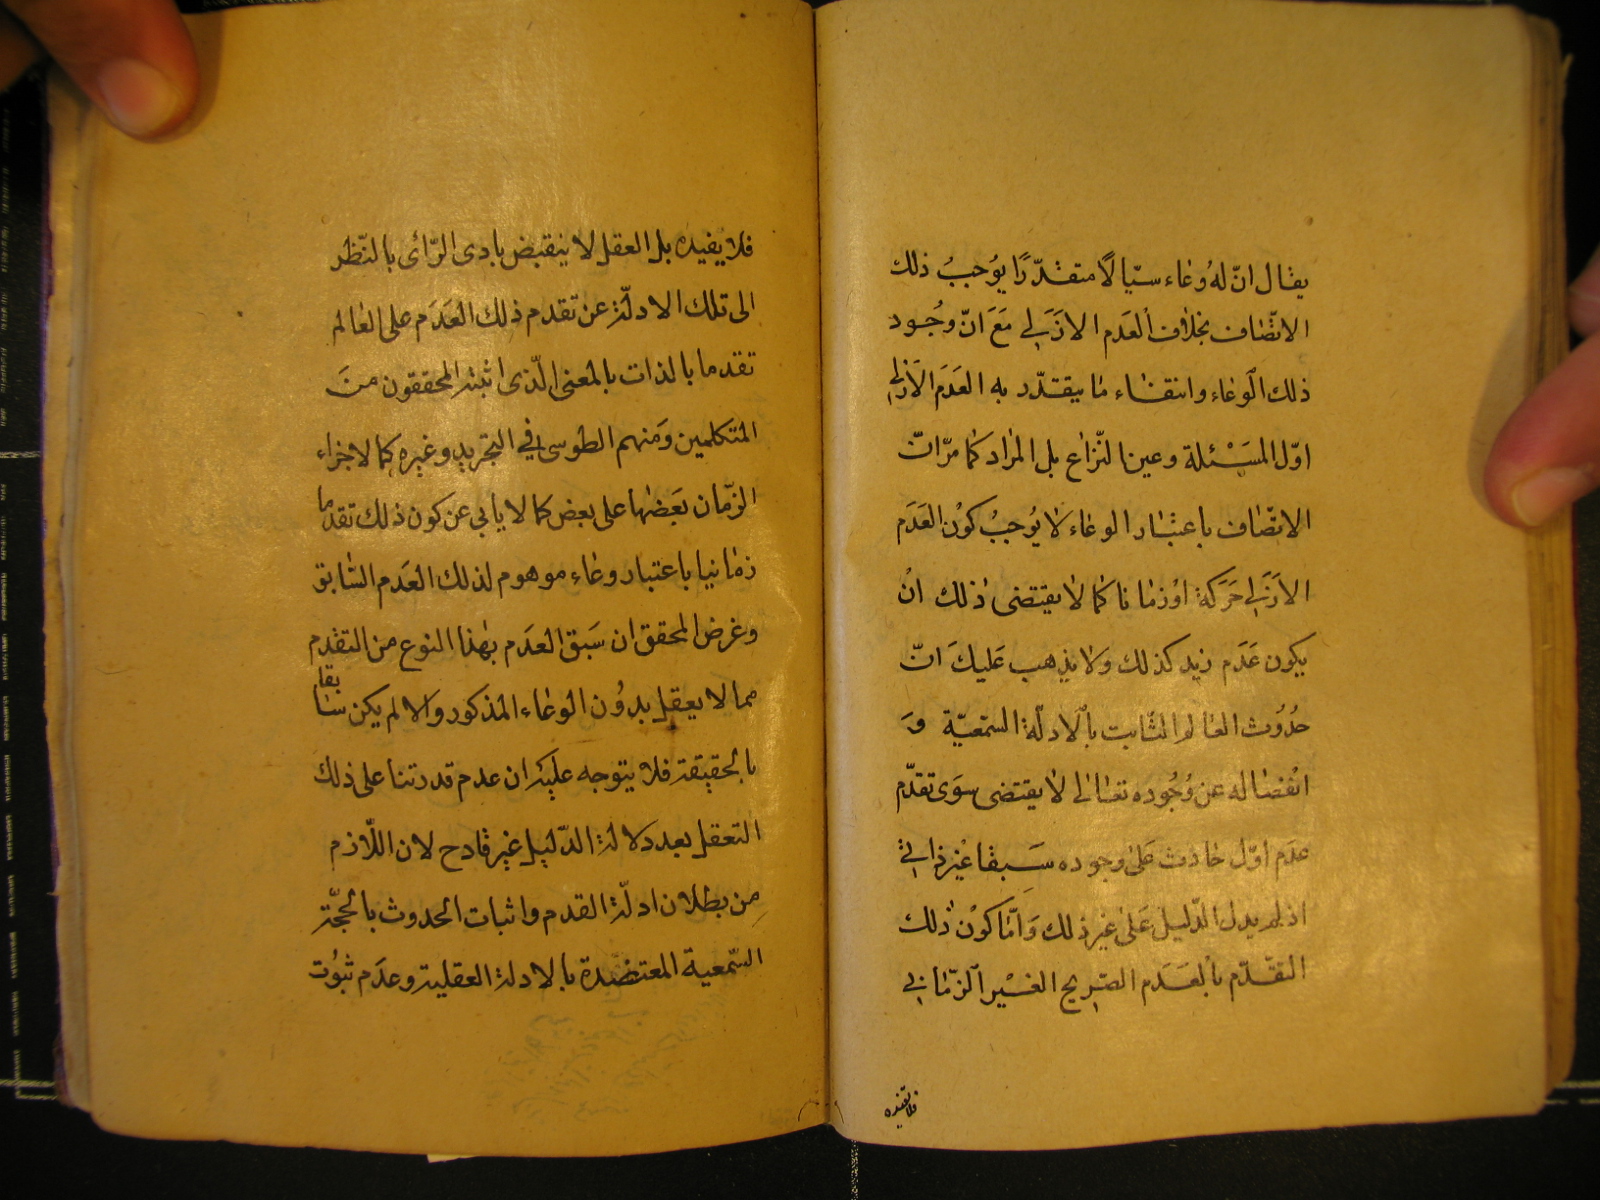 يقال انّ لهُ وعٰاء سيّالاً متقدّرًا يوُجبُ ذلك
الاتّصٰاف بخلاف ألعَدم الازَلي مَعَ انّ وجُود
ذلك الوعٰاء وانتفٰاء مٰا يتقدّر به العَدَم الازلي
اوّل المَسْئلة وعين النّزاع بل المرٰاد كمٰا مرّ انّ
الاتّصٰاف باعتبٰار الوعٰاء لٰا يُوجبُ كوْن العَدَم
الازَلي حَرَكة اوْ زمٰانا كمٰا لٰا يقتضى ذٰلك انْ
يكون عَدَم زيد كذلك ولٰا يذهب عَليكَ انّ
حدُوُث العٰالم الثّابت بألادلّة السّمعيّة وَ
انْفصٰاله عن وُجُوده تعٰالى لٰا يقتضى سوَى تقدّم
عدَم اوّل حٰادث عَلى وجوده سَبقا غيْر ذاتي
اذ لم يدل الدّليل عَلى غير ذلك وَامّا كوْن ذٰلك
التقدّم بألعَدَم الصّريح الغَيْر ألزّمٰاني
فلا يفيده
فلا يفيده بل العقل لا ينقبض بادى الرّائى بالنّظر
الى تلك الادلّة عن تقدم ذلك العَدَم على العٰالم
تقدما بالذات بالمعنى الّذى اثبته المحققون منَ
المتكلمين وَمنهم الطوسى في التجريد وغيره كما لاجزاء
الزّمان بَعضهٰا على بعض كما لا يابي عن كون ذلك تقدما
زمٰانيا باعتبار وعٰاء موهوم لذلك العَدم السّابق
وغرض المحقق ان سَبق العدَم بهٰذا النوع من التقدم
مما لا يعقل بدوُن الوعٰاء المذكور والا لم يكن سٰابقا
بالحقيقة فلا يتوجه عليه ان عدم قدرتنا على ذلك
التعقل بعد دلالة الدّليل غير قادح لان اللّازم
من بطلان ادلّة القدم واثبات الحدوث بالحجّة
السّمعية المعتضدة بالادلة العقلية وعدَم ثبوُت